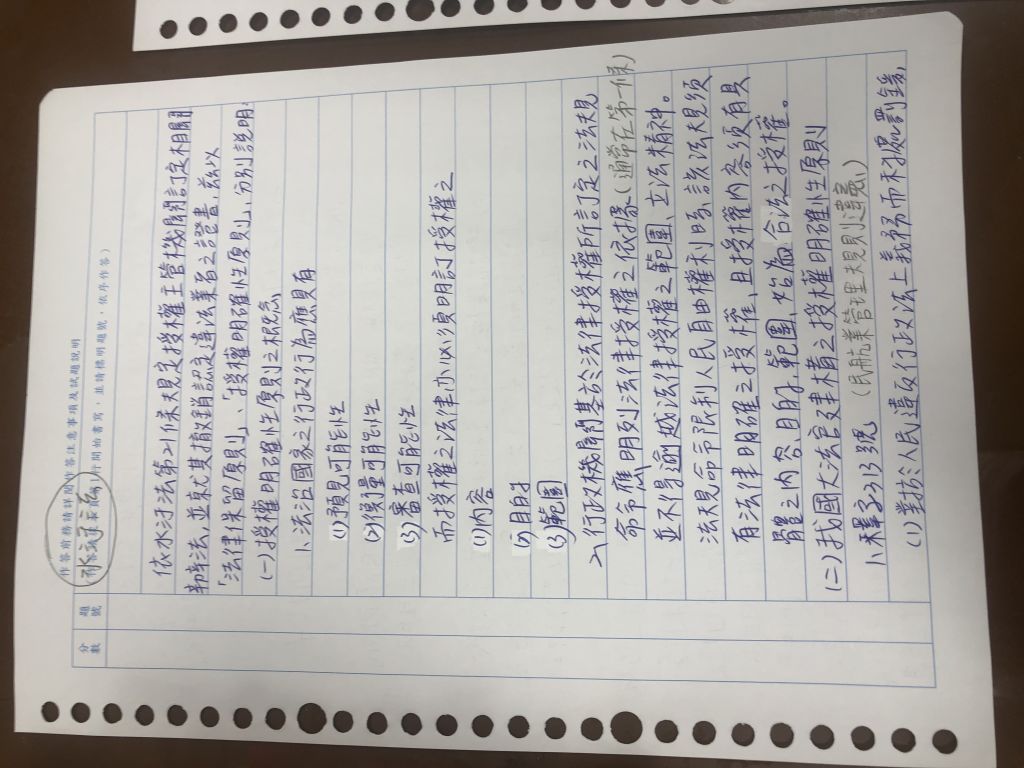 作答前務請詳閱作答注意事項及試題說明
分數
題號
水汙法
（請從本頁第1行開始書寫，並請標明題號，依序作答）
依水汙法第21條規定授權主管機關訂定相關
辦法，並就其撤銷認定違法業者之證書，茲以
「法律保留原則」、「授權明確性原則」，分別說明：
(一)授權明確性原則之概念
1、法治國家之行政行為應具有
(1)預見可能性
(2)衡量可能性
(3)審查可能性
而授權之法律亦必須明訂授權之
(1)內容
(2)目的
(3)範圍
2、行政機關基於法律授權所訂定之法規
命令應明列法律授權之依據（通常在第一條）
並不得逾越法律授權之範圍、立法精神。
法規命令限制人民自由權利時，該法規須
有法律明確之授權，且授權內容須有具
體之內容、目的、範圍，始為合法之授權。
(二)我國大法官建構之授權明確性原則
1、釋字313號（民航業管理規則違憲）
(1)對於人民違反行政法上義務而科處罰鍰，